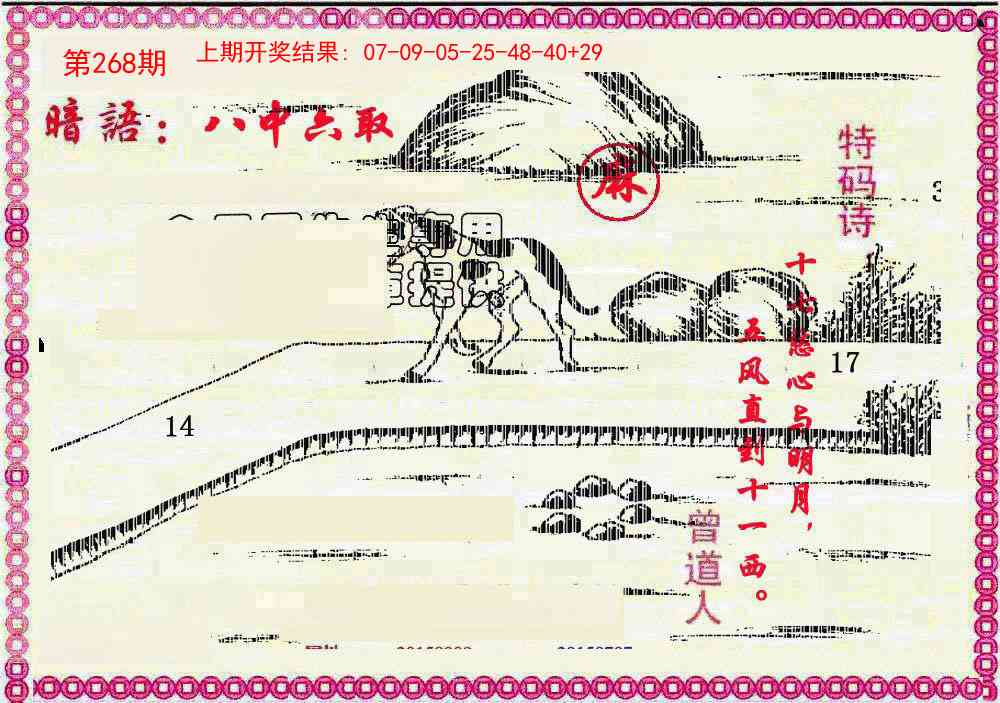 第268期
上期开奖结果：07-09-05-25-48-40+29
暗語：八中六取
麻
特码诗
十七慈心与明月，
五风直到十一西。
17
14
曾道人